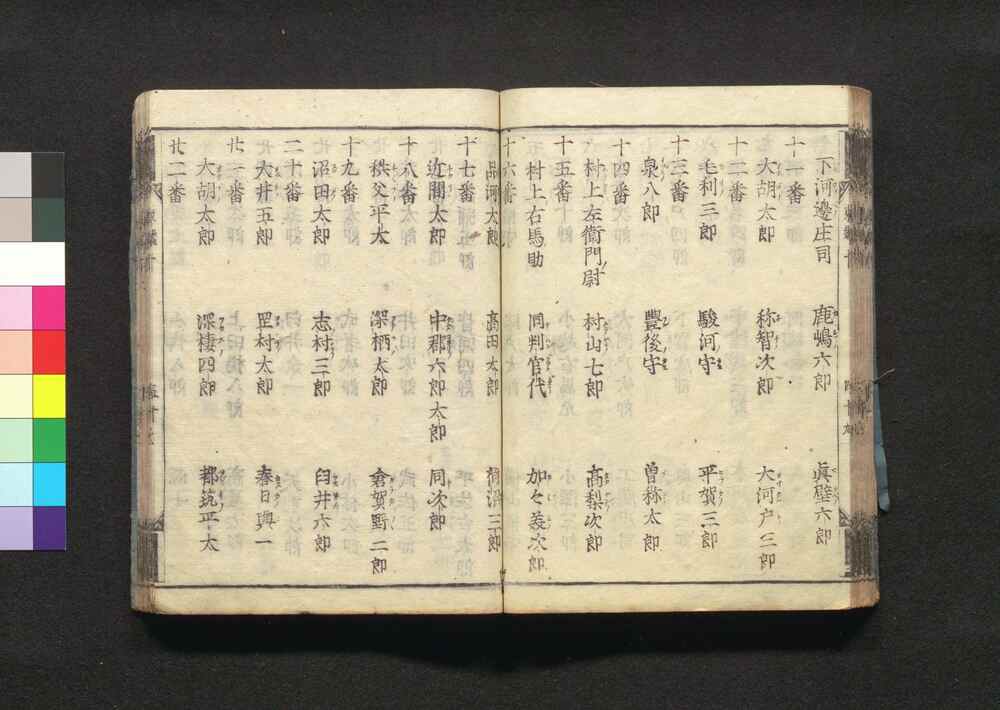 下河邊庄司 鹿嶋六郎 眞壁六郎
十一番
大胡太郎 祢智次郎 大河戸三郎
十二番
毛利三郎 駿河守 平賀三郎
十三番
泉八郎 豐後守 曽祢太郎
十四番
村上左衛門尉 村山七郎 高梨次郎
十五番
村上右馬助 同判官代 加々美次郎
十六番
品河太郎 高田太郎 三郎
十七番
近間太郎 中郡六郎太郎 同次郎
十八番
秩父平太 深栖太郎 倉賀野二郎
十九番
沼田太郎 志村三郎 臼井六郎
二十番
大井五郎 罡村太郎 春日與一
廿一番
大胡太郎 深棲四郎 都筑平太
廿二番